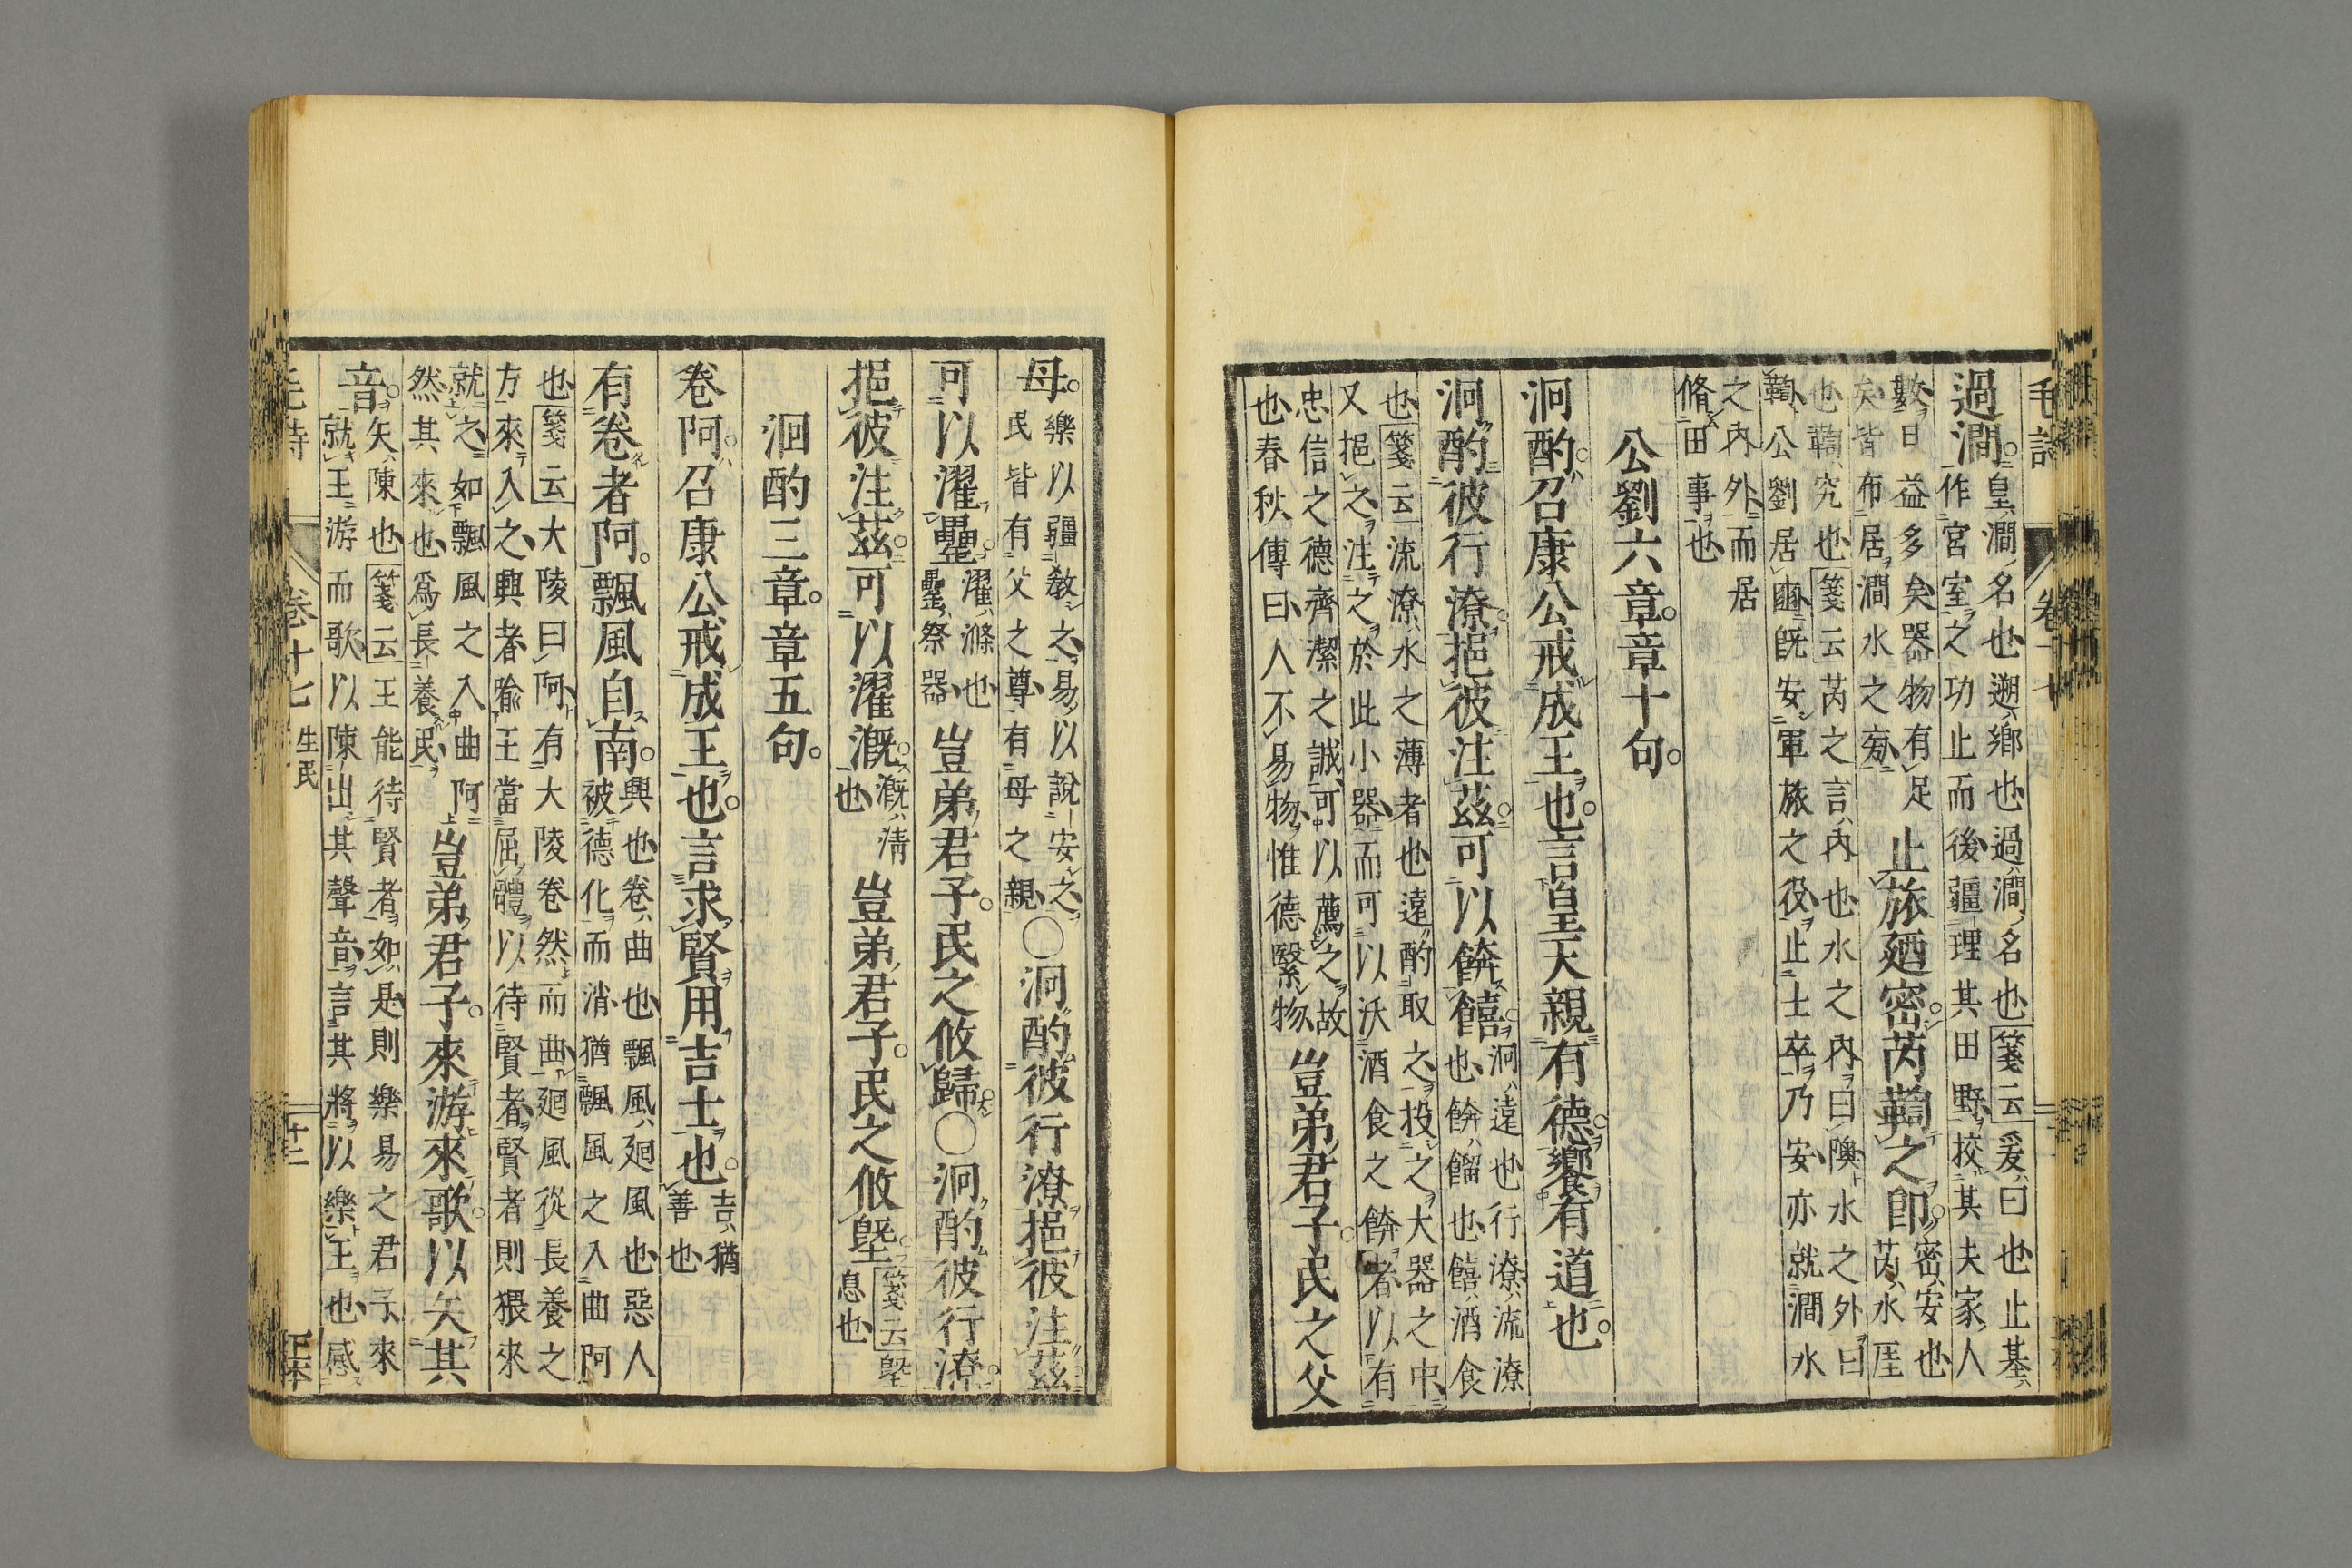 毛詩 卷十七
過澗。皇澗名也遡鄉也過澗名也箋云爰曰也止基作宮室之功止而後疆理其田野挍其夫家人
數日益多矣器物有足矣皆布居澗水之旁止旅廼密。芮鞫之即。密安也芮水厓
也鞫究也箋云芮之言內也水之內曰隩水之外曰鞫公劉居豳既安軍旅之役止士卒乃安亦就澗水
之內外而居脩田事也
公劉六章。章十句。
泂酌。召康公戒成王也。言皇天親有德。饗有道也。
泂酌彼行潦。挹彼注茲。可以餴饎。泂遠也行潦流潦也餴餾也饎酒食
也箋云流潦水之薄者也遠酌取之投之大器之中又挹之注之於此小器而可以沃酒食之餴者以有
忠信之德齊潔之誠可以薦之故也春秋傳曰人不易物惟德繄物豈弟君子。民之父
母。樂以疆教之易以說安之民皆有父之尊有母之親○泂酌彼行潦。挹彼注茲。
可以濯罍。濯滌也罍祭器豈弟君子。民之攸歸。○泂酌彼行潦。
挹彼注茲。可以濯溉。溉清也豈弟君子。民之攸塈。箋云塈息也
泂酌三章。章五句。
卷阿。召康公戒成王也。言求賢用吉士也。吉猶善也
有卷者阿。飄風自南。興也卷曲也飄風廻風也惡人被德化而消猶飄風之入曲阿
也箋云大陵曰阿有大陵卷然而曲廻風從長養之方來入之興者喻王當屈體以待賢者賢者則猥來
就之如飄風之入曲阿然其來也爲長養民豈弟君子。來游來歌。以矢其
音。矢陳也箋云王能待賢者如是則樂易之君子來就王游而歌以陳出其聲音言其將以樂王也感
毛詩 卷十七 生民 十二